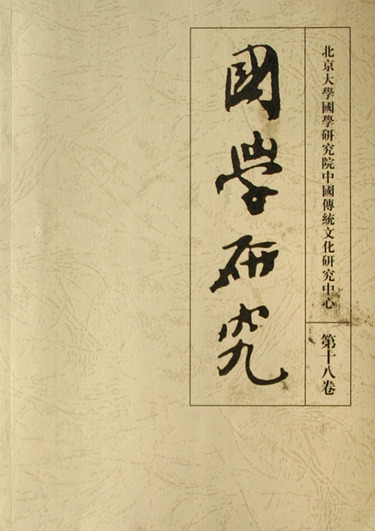 北京大學國學研究院中國傳統文化研究中心
第十八卷
國學研究